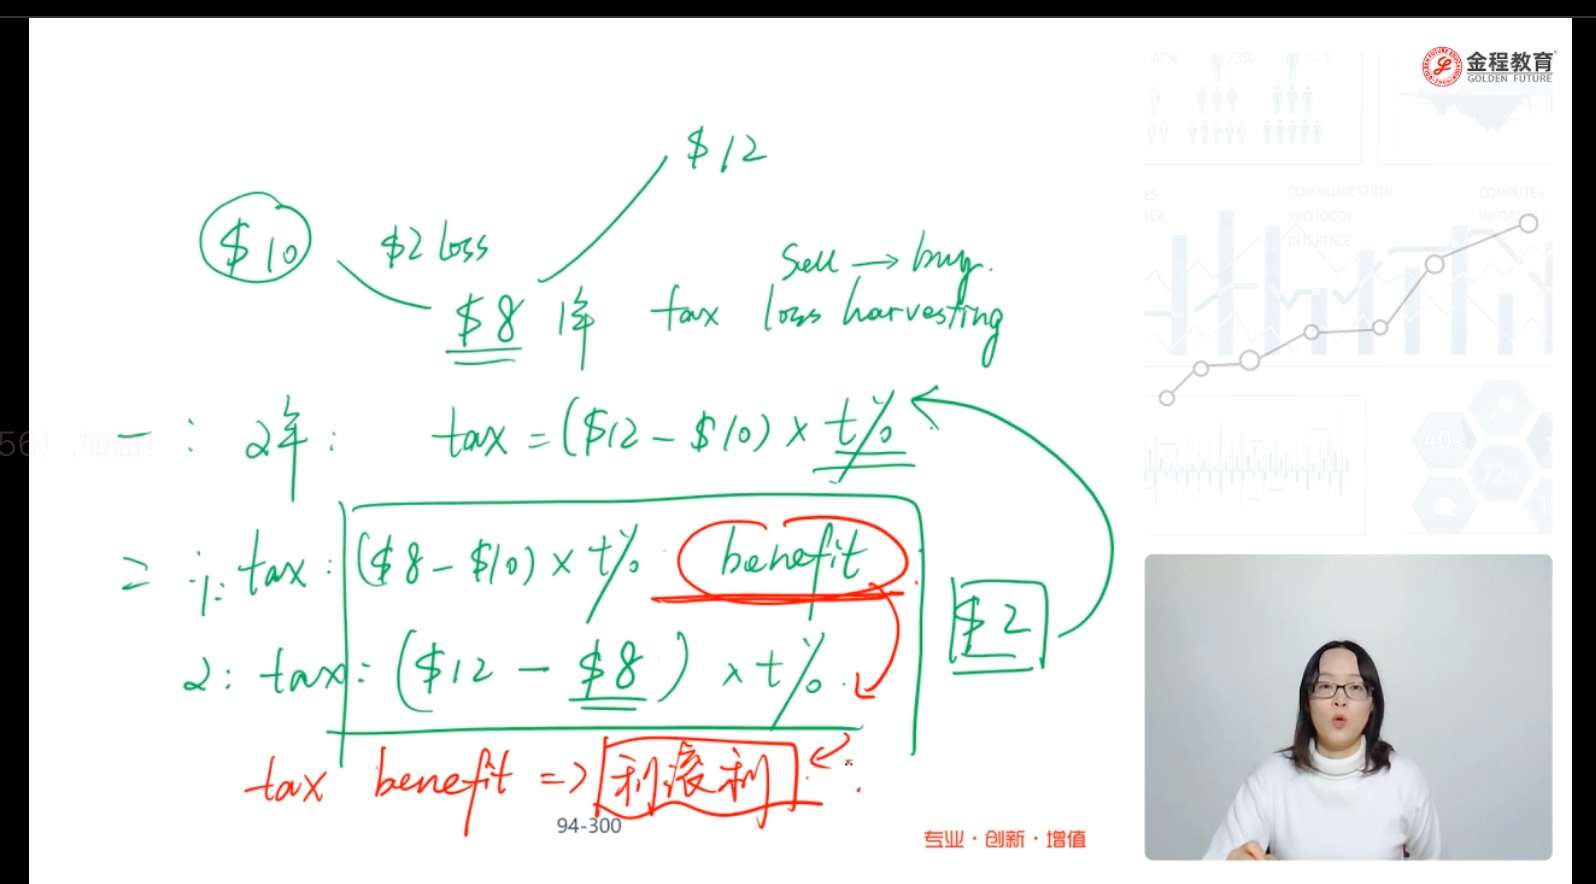 金程教育
GOLDEN FUTURE
$12
$10
$2 loss
sell → buy.
$8 1年 tax loss harvesting
一: 2年: tax = ($12 - $10) × t%
二: 1: tax: ($8 - $10) × t% benefit
$2
2: tax: ($12 - $8) × t%.
tax benefit => 利滚利
94-300
专业·创新·增值